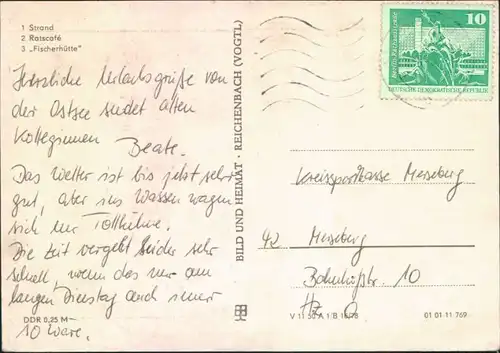 1 Strand
2 Ratscafé
3 „Fischerhütte"
Herzliche Urlaubsgrüße von
der Ostsee sendet allen
Kolleginnen
Beate.
Das Wetter ist bis jetzt sehr
gut, aber ins Wasser wagen
sich nur Tollkühne.
Die Zeit vergeht leider sehr
schnell, wenn das nur am
langen Dienstag auch immer
so wäre.
DDR 0,25 M
BILD UND HEIMAT · REICHENBACH (VOGTL)
10
DEUTSCHE DEMOKRATISCHE REPUBLIK
Kreissparkasse Merseburg
42 Merseburg
Bahnhofstr. 10
V 11 50 A 1/B
01 01 11 769